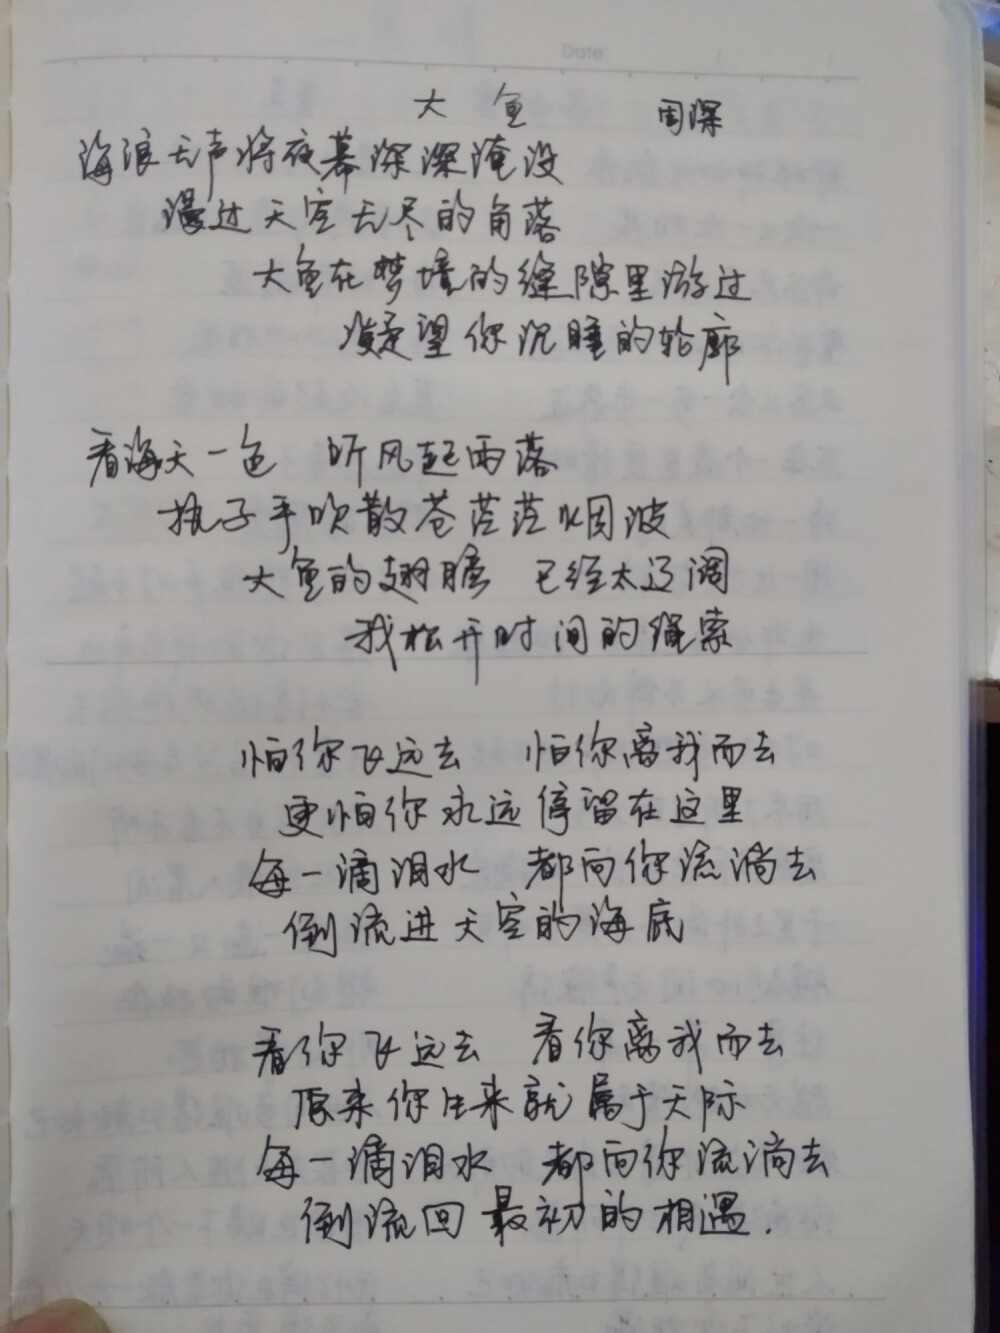 Date:
大鱼 周深
海浪无声将夜幕深深淹没
漫过天空无尽的角落
大鱼在梦境的缝隙里游过
凝望你沉睡的轮廓
看海天一色 听风起雨落
执子手吹散苍茫茫烟波
大鱼的翅膀 已经太辽阔
我松开时间的绳索
怕你飞远去 怕你离我而去
更怕你永远停留在这里
每一滴泪水 都向你流淌去
倒流进天空的海底
看你飞远去 看你离我而去
原来你生来就属于天际
每一滴泪水 都向你流淌去
倒流回最初的相遇.